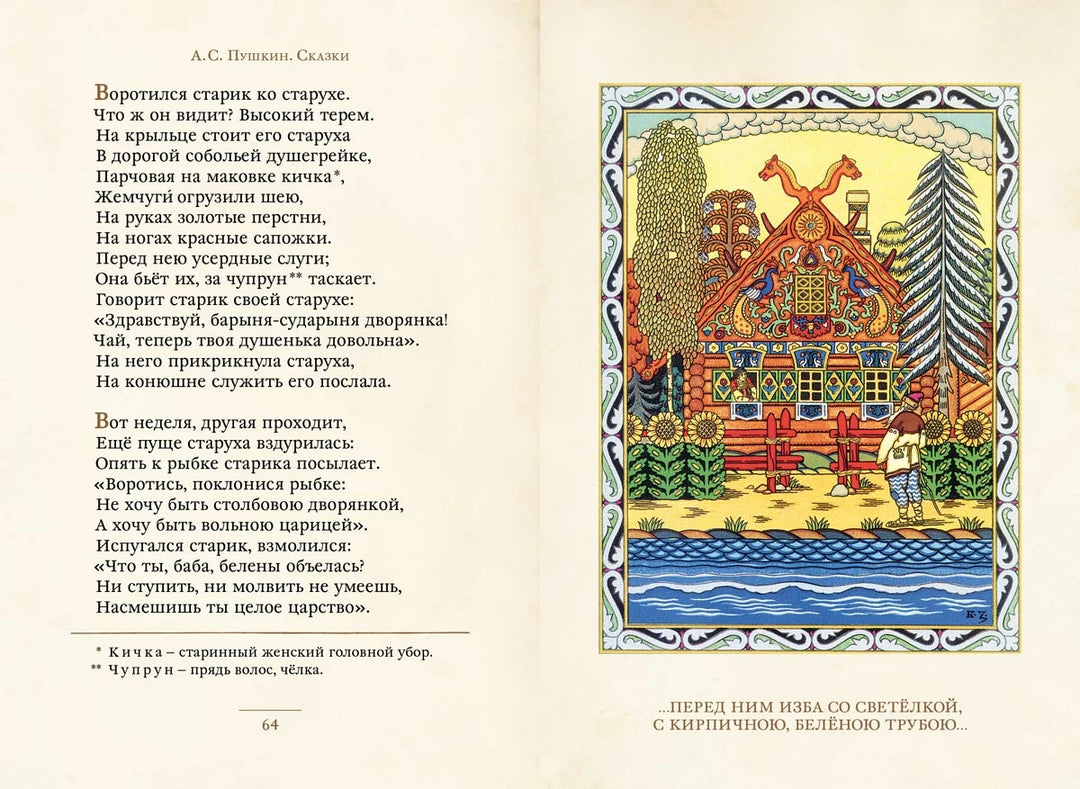 А.С. Пушкин. Сказки
Воротился старик ко старухе.
Что ж он видит? Высокий терем.
На крыльце стоит его старуха
В дорогой собольей душегрейке,
Парчовая на маковке кичка*,
Жемчуги́ огрузили шею,
На руках золотые перстни,
На ногах красные сапожки.
Перед нею усердные слуги;
Она бьёт их, за чупрун** таскает.
Говорит старик своей старухе:
«Здравствуй, барыня-сударыня дворянка!
Чай, теперь твоя душенька довольна».
На него прикрикнула старуха,
На конюшне служить его послала.
Вот неделя, другая проходит,
Ещё пуще старуха вздурилась:
Опять к рыбке старика посылает.
«Воротись, поклонися рыбке:
Не хочу быть столбовою дворянкой,
А хочу быть вольною царицей».
Испугался старик, взмолился:
«Что ты, баба, белены объелась?
Ни ступить, ни молвить не умеешь,
Насмешишь ты целое царство».
* Кичка – старинный женский головной убор.
** Чупрун – прядь волос, чёлка.
64
...ПЕРЕД НИМ ИЗБА СО СВЕТЁЛКОЙ,
С КИРПИЧНОЮ, БЕЛЁНОЮ ТРУБОЮ...